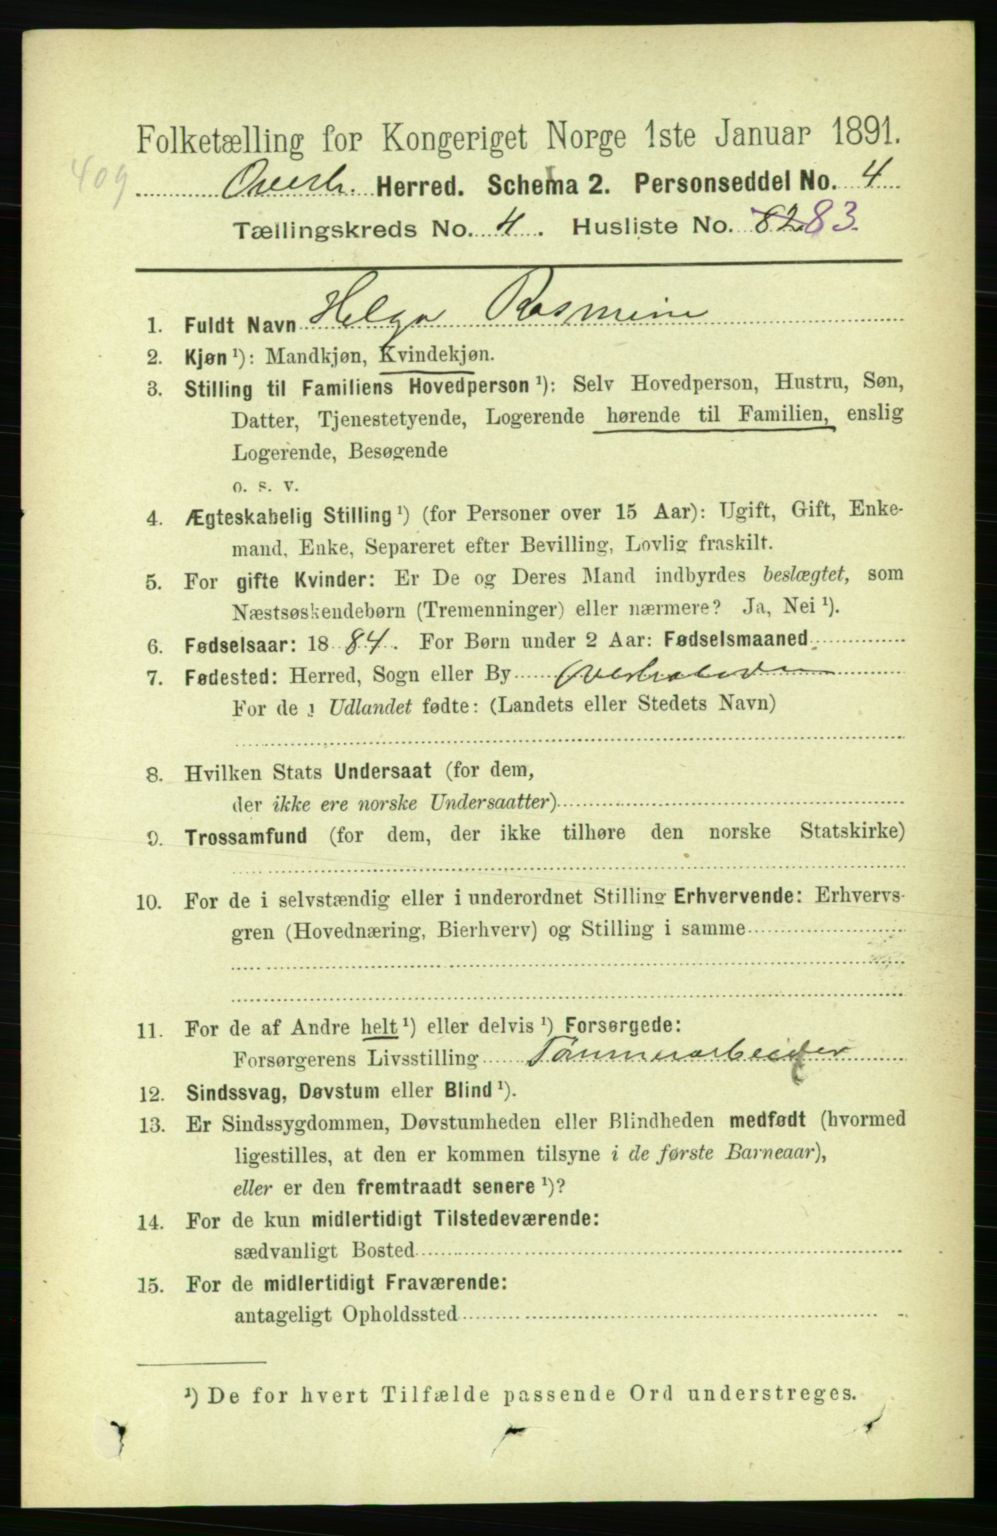 Folketælling for Kongeriget Norge 1ste Januar 1891.
409
Overh. Herred. Schema 2. Personseddel No. 4
Tællingskreds No. 4. Husliste No. 82 83.
1. Fuldt Navn Helga Rasmine
2. Kjøn ¹): Mandkjøn, Kvindekjøn.
3. Stilling til Familiens Hovedperson ¹): Selv Hovedperson, Hustru, Søn,
Datter, Tjenestetyende, Logerende hørende til Familien, enslig
Logerende, Besøgende
o. s. v.
4. Ægteskabelig Stilling ¹) (for Personer over 15 Aar): Ugift, Gift, Enke-
mand, Enke, Separeret efter Bevilling, Lovlig fraskilt.
5. For gifte Kvinder: Er De og Deres Mand indbyrdes beslægtet, som
Næstsøskendebørn (Tremenninger) eller nærmere? Ja, Nei ¹).
6. Fødselsaar: 1884. For Børn under 2 Aar: Fødselsmaaned
7. Fødested: Herred, Sogn eller By Overhalden
For de i Udlandet fødte: (Landets eller Stedets Navn)
8. Hvilken Stats Undersaat (for dem,
der ikke ere norske Undersaatter)
9. Trossamfund (for dem, der ikke tilhøre den norske Statskirke)
10. For de i selvstændig eller i underordnet Stilling Erhvervende: Erhvervs-
gren (Hovednæring, Bierhverv) og Stilling i samme
11. For de af Andre helt ¹) eller delvis ¹) Forsørgede:
Forsørgerens Livsstilling Tømmerarbeider
12. Sindssvag, Døvstum eller Blind ¹).
13. Er Sindssygdommen, Døvstumheden eller Blindheden medfødt (hvormed
ligestilles, at den er kommen tilsyne i de første Barneaar),
eller er den fremtraadt senere ¹)?
14. For de kun midlertidigt Tilstedeværende:
sædvanligt Bosted
15. For de midlertidigt Fraværende:
antageligt Opholdssted
¹) De for hvert Tilfælde passende Ord understreges.